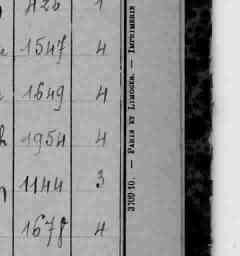 426 1
1547 4
1649 4
1954 4
1144 3
1678 4
3709-10. — PARIS ET LIMOGES. — IMPRIMERIE